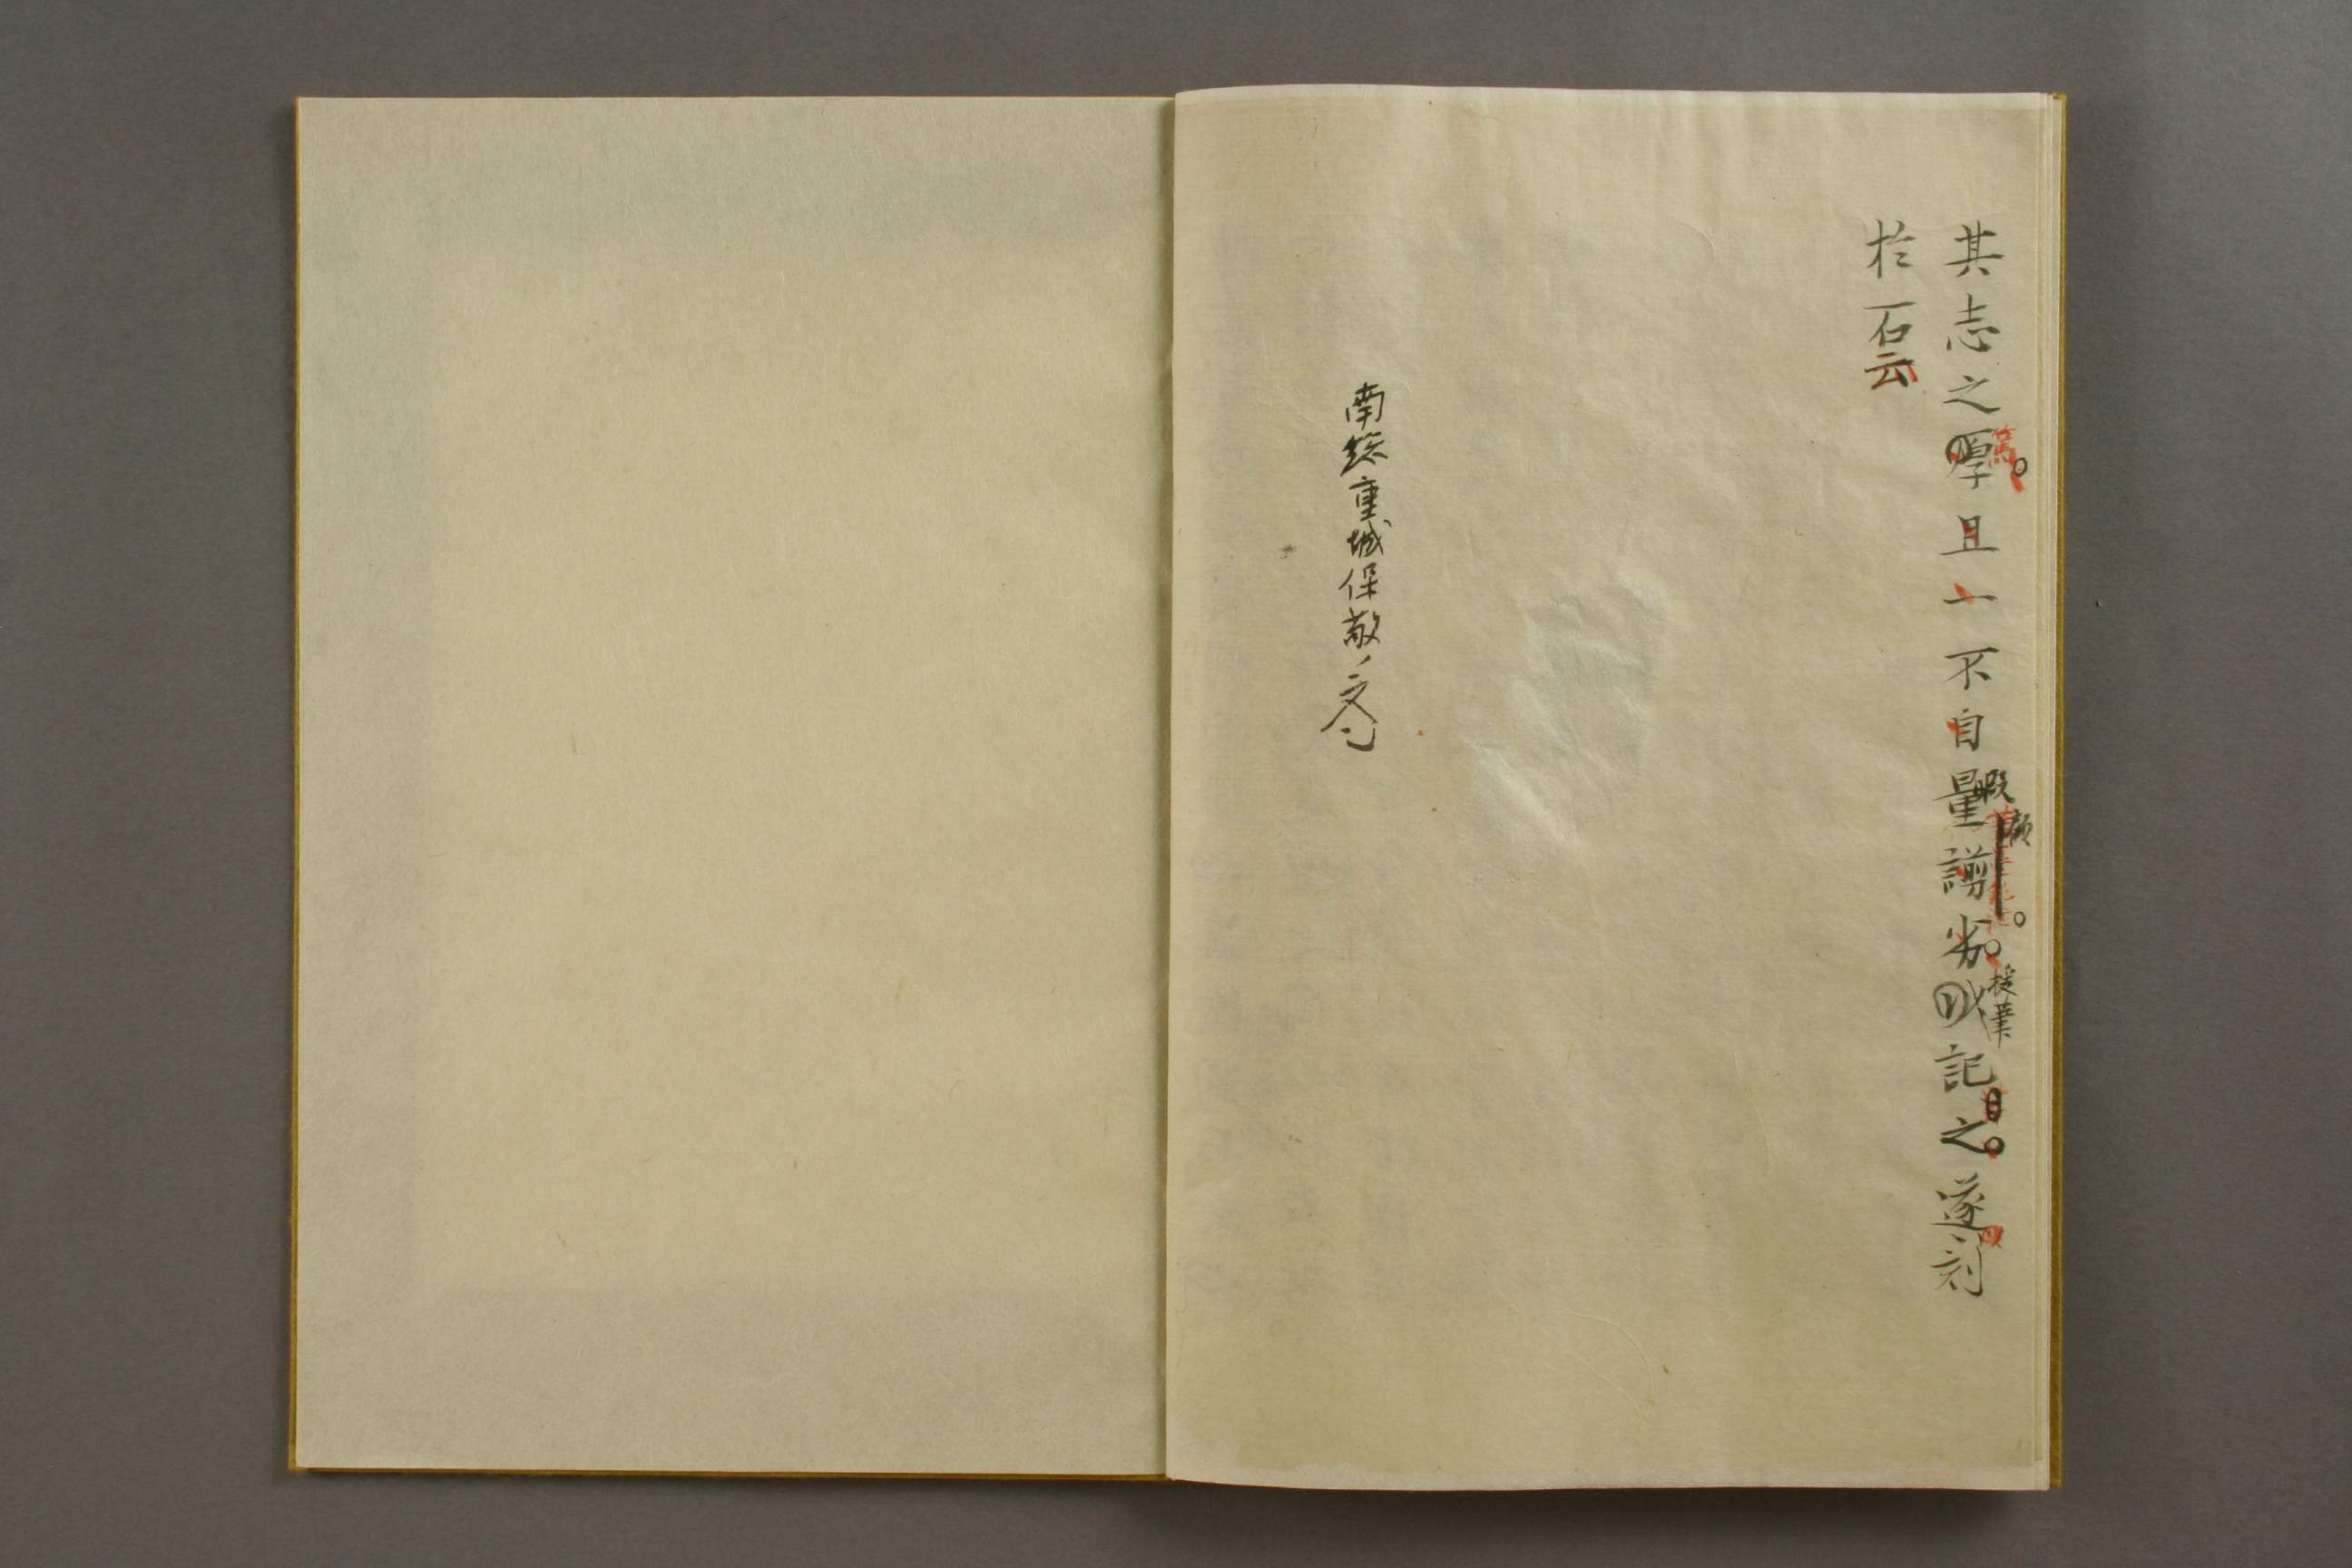 其志之厚且一不自量謭劣以記之遂刻
篤
暇
援筆
於石云
南総重城保敬文